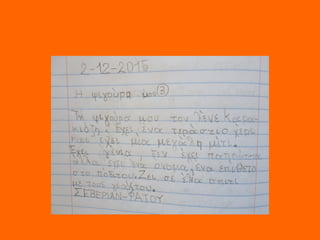 2-12-2015
Η φιγούρα μου ③
Τη φιγούρα μου τον λένε Καραγ
κιόζη. Έχει ένα τεράστιο χέρι
και έχει μια μεγάλη μύτη.
Έχει γένια, δεν έχει παπούτσια
αλλά έχει ένα όνομα, ένα επίθετο
στο Ζει σε ένα σπίτι
με τους
ΣΕΒΕΡΙΑΝ-ΡΑΤΟΥ